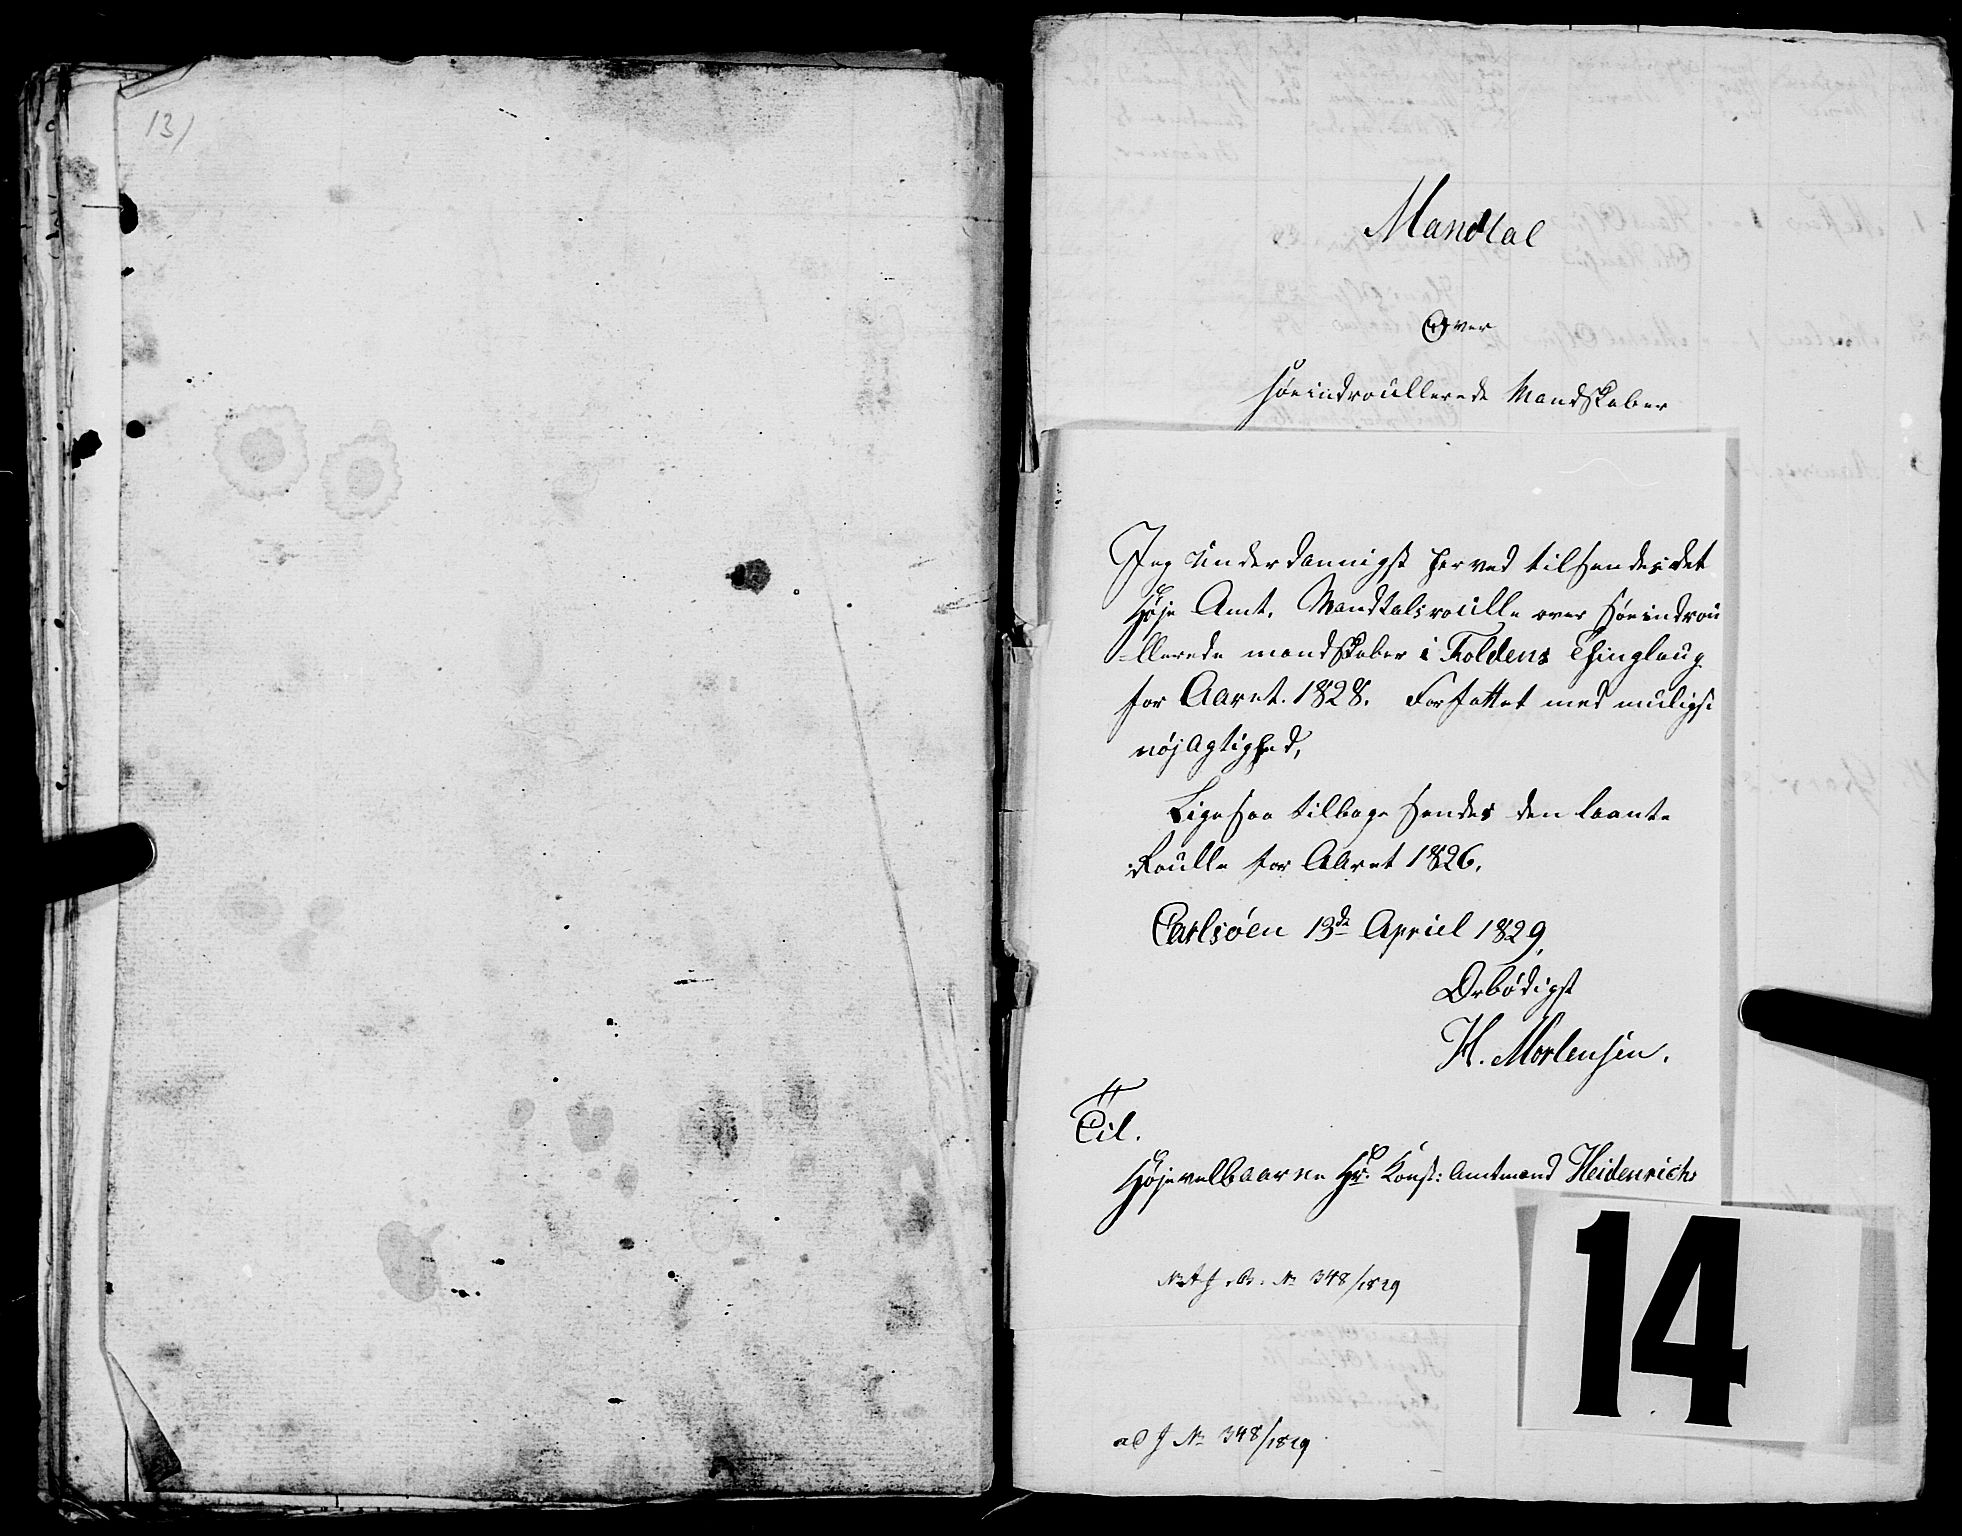 13)
Mandtal
Over
søeindroullerede Mandskaber
Jeg underdannigst herved tilsendes det
Høje Amt. Mandtalsroulle over søeindrou
-llerede mandskaber i Foldens Thinglaug
for Aaret. 1828. Forfattet med muligst
nøjagtighed,
Ligesaa tilbage sendes den laante
Roulle for Aaret 1826.
Carlsøen 13de Apriel 1829.
Ærbødigst
H. Mortensen.
Til.
Højvelbaarne Hr. Konst: Amtmand Heidenrich
J. No 348/1829
14
ad J No 348/1829